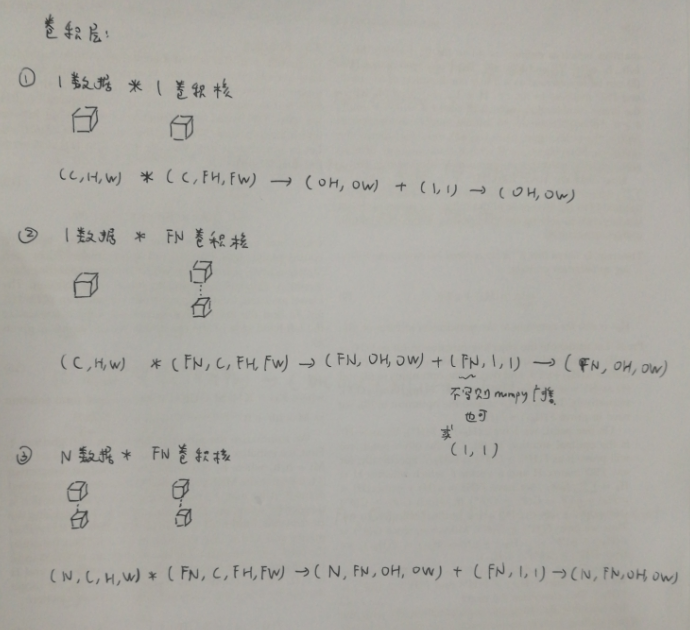 卷积层:
① 1数据 * 1卷积核
(C,H,W) * (C,FH,FW) → (OH, OW) + (1,1) → (OH,OW)
② 1数据 * FN卷积核
(C,H,W) * (FN, C, FH, FW) → (FN, OH, OW) + (FN,1,1) → (FN, OH, OW)
不写则numpy广播
也可
或
(1,1)
③ N数据 * FN卷积核
(N,C,H,W) * (FN, C, FH, FW) → (N, FN, OH, OW) + (FN,1,1) → (N, FN, OH, OW)